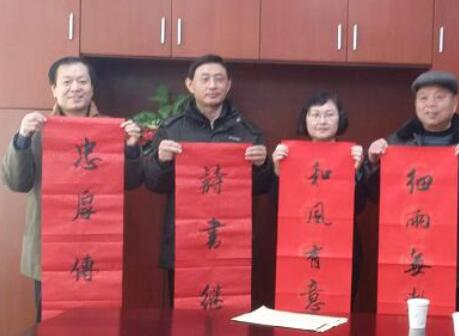 忠厚傳
詩書继
和風有意
细雨無